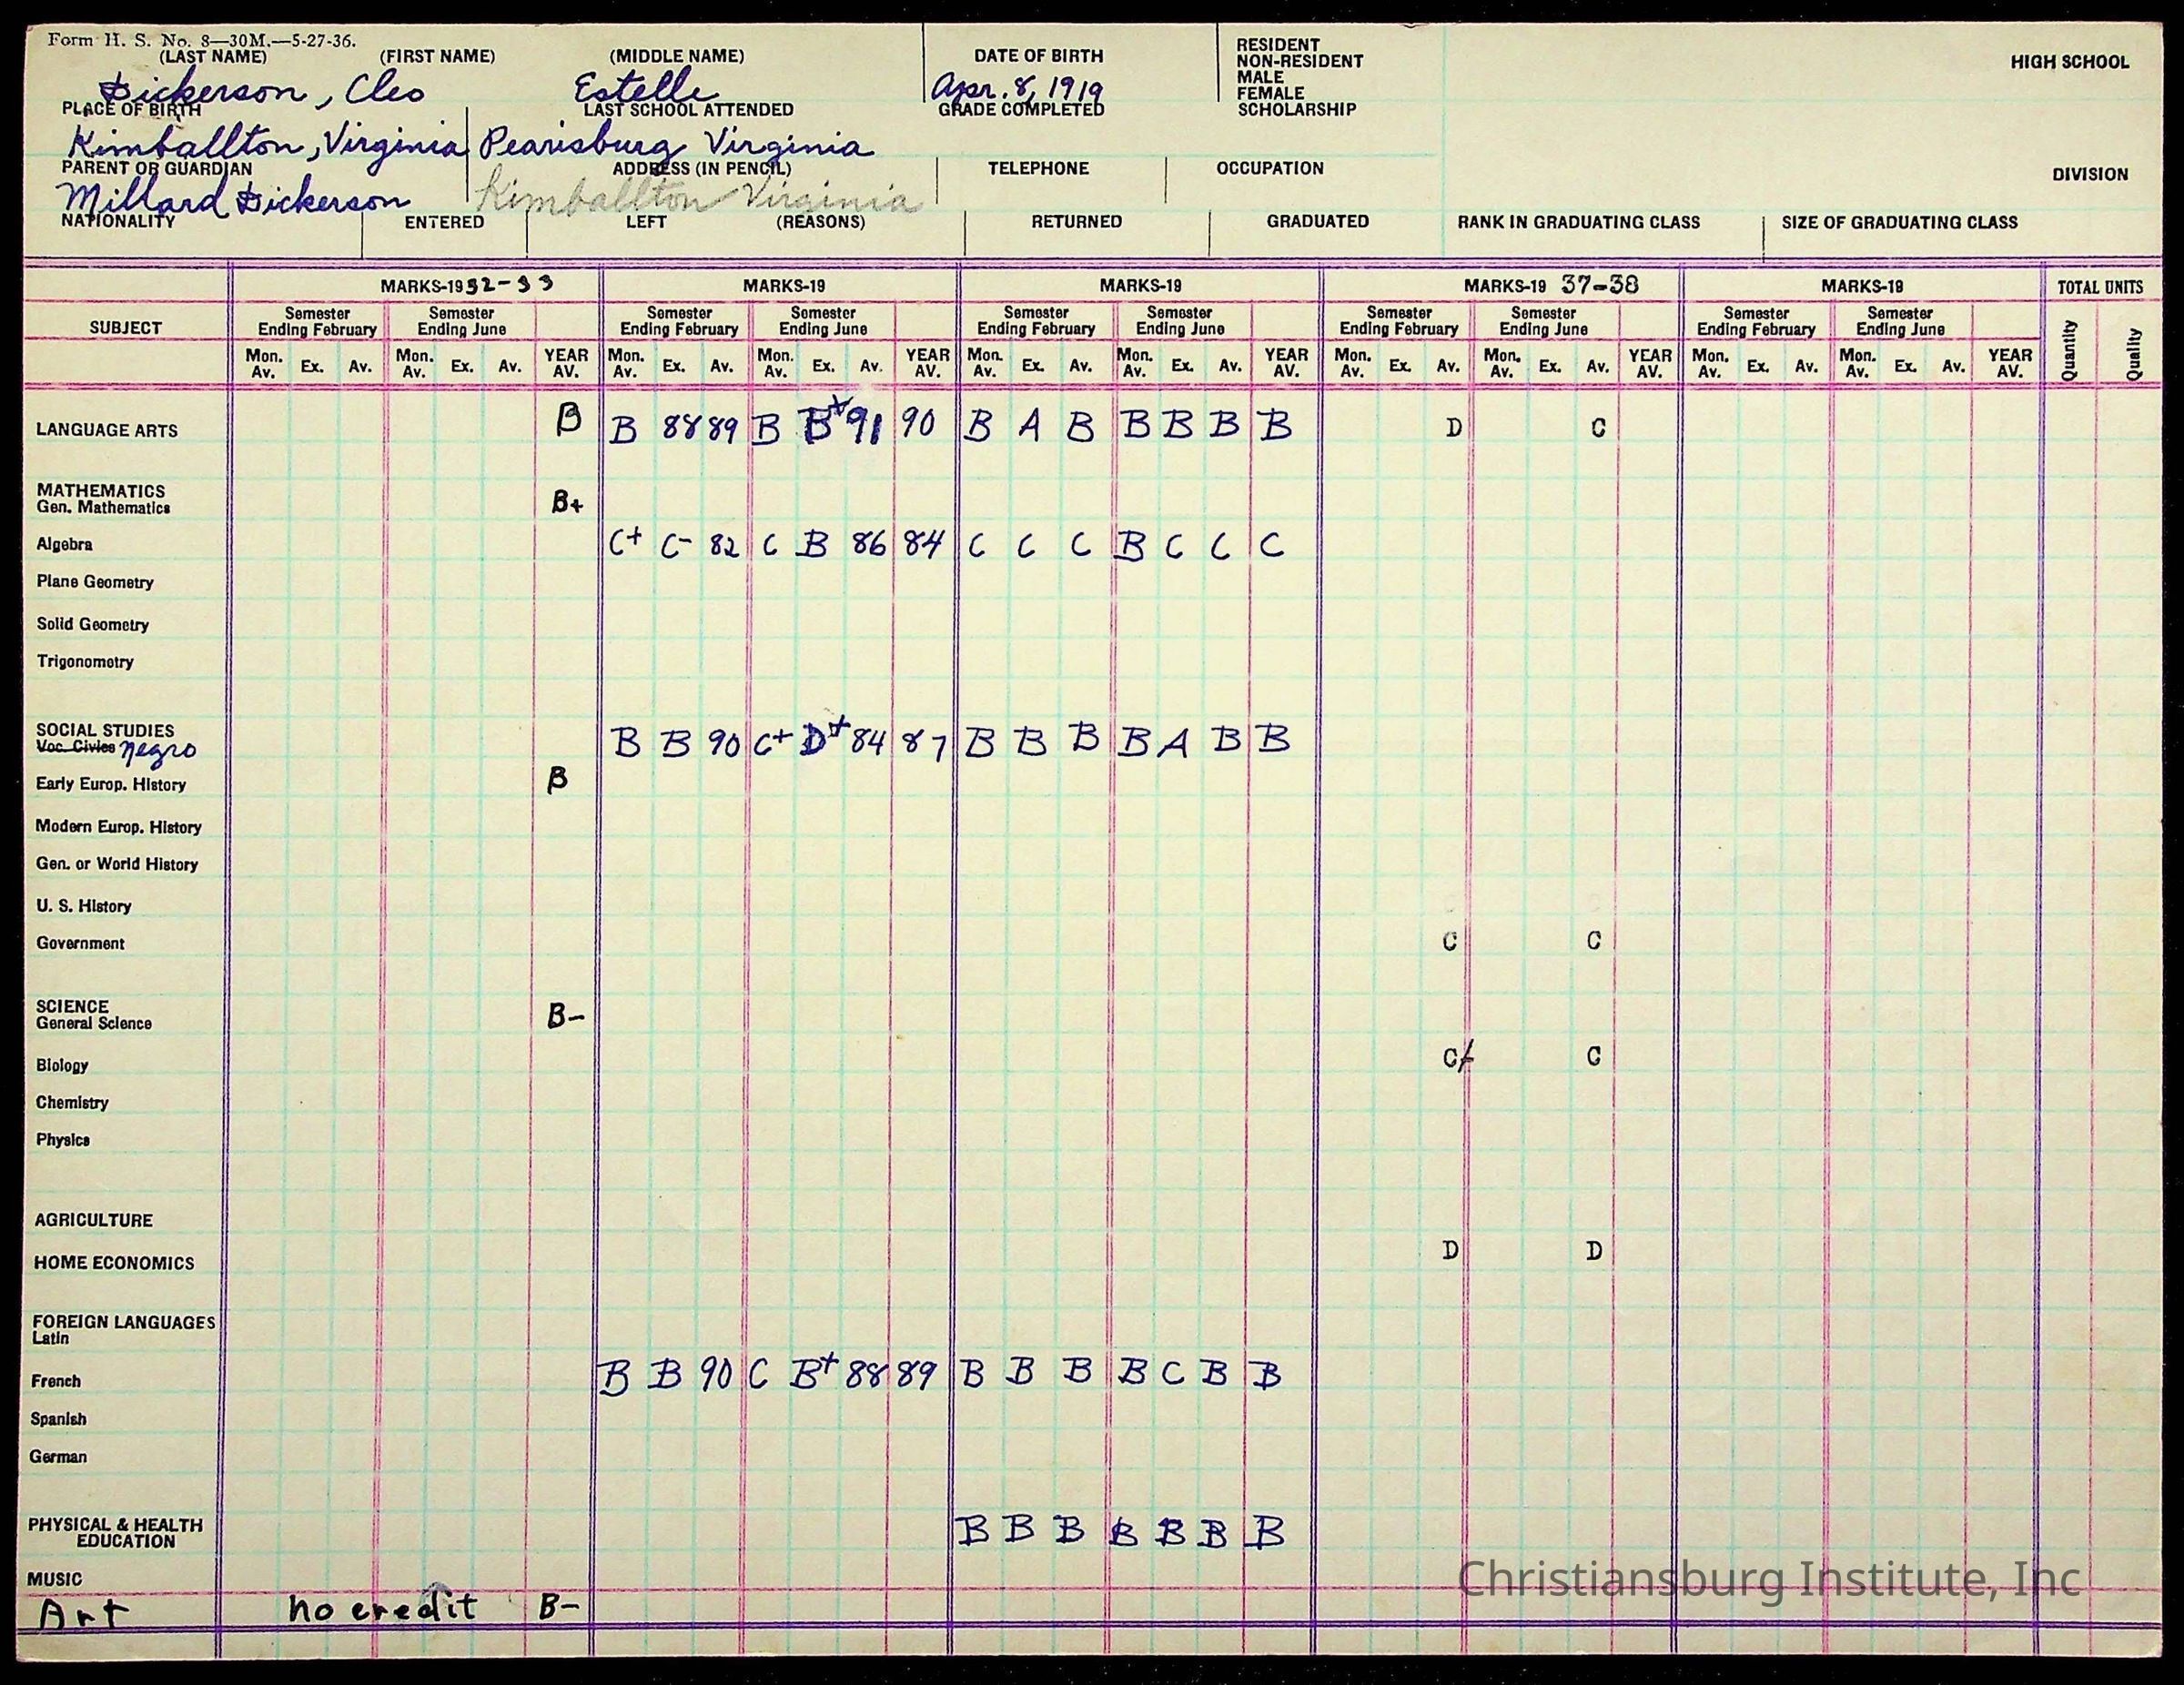 Form H. S. No. 8—30M.—5-27-36.
(LAST NAME) (FIRST NAME) (MIDDLE NAME) DATE OF BIRTH
Dickerson, Cleo Estelle Apr. 8, 1919
RESIDENT
NON-RESIDENT
MALE
FEMALE
SCHOLARSHIP
HIGH SCHOOL
PLACE OF BIRTH LAST SCHOOL ATTENDED GRADE COMPLETED
Kimballton, Virginia Pearisburg Virginia
PARENT OR GUARDIAN ADDRESS (IN PENCIL) TELEPHONE OCCUPATION DIVISION
Millard Dickerson Kimballton Virginia
NATIONALITY ENTERED LEFT (REASONS) RETURNED GRADUATED RANK IN GRADUATING CLASS SIZE OF GRADUATING CLASS
MARKS-1932-33 MARKS-19 MARKS-19 MARKS-19 37-38 MARKS-19 TOTAL UNITS
SUBJECT Semester Ending February Semester Ending June Semester Ending February Semester Ending June Semester Ending February Semester Ending June Semester Ending February Semester Ending June Semester Ending February Semester Ending June Quantity Quality
Mon. Av. Ex. Av. Mon. Av. Ex. Av. YEAR AV. Mon. Av. Ex. Av. Mon. Av. Ex. Av. YEAR AV. Mon. Av. Ex. Av. Mon. Av. Ex. Av. YEAR AV. Mon. Av. Ex. Av. Mon. Av. Ex. Av. YEAR AV. Mon. Av. Ex. Av. Mon. Av. Ex. Av. YEAR AV.
LANGUAGE ARTS B B 88 89 B B+ 91 90 B A B B B B B D C
MATHEMATICS
Gen. Mathematics B+
Algebra C+ C- 82 C B 86 84 C C C B C C C
Plane Geometry
Solid Geometry
Trigonometry
SOCIAL STUDIES
Voc. Civics Negro B B 90 C+ D+ 84 87 B B B B A B B
Early Europ. History B
Modern Europ. History
Gen. or World History
U. S. History
Government C C
SCIENCE
General Science B-
Biology C/ C
Chemistry
Physics
AGRICULTURE
HOME ECONOMICS D D
FOREIGN LANGUAGES
Latin
French B B 90 C B+ 88 89 B B B B C B B
Spanish
German
PHYSICAL & HEALTH
EDUCATION B B B B B B B
MUSIC
Art no credit B-
Christiansburg Institute, Inc